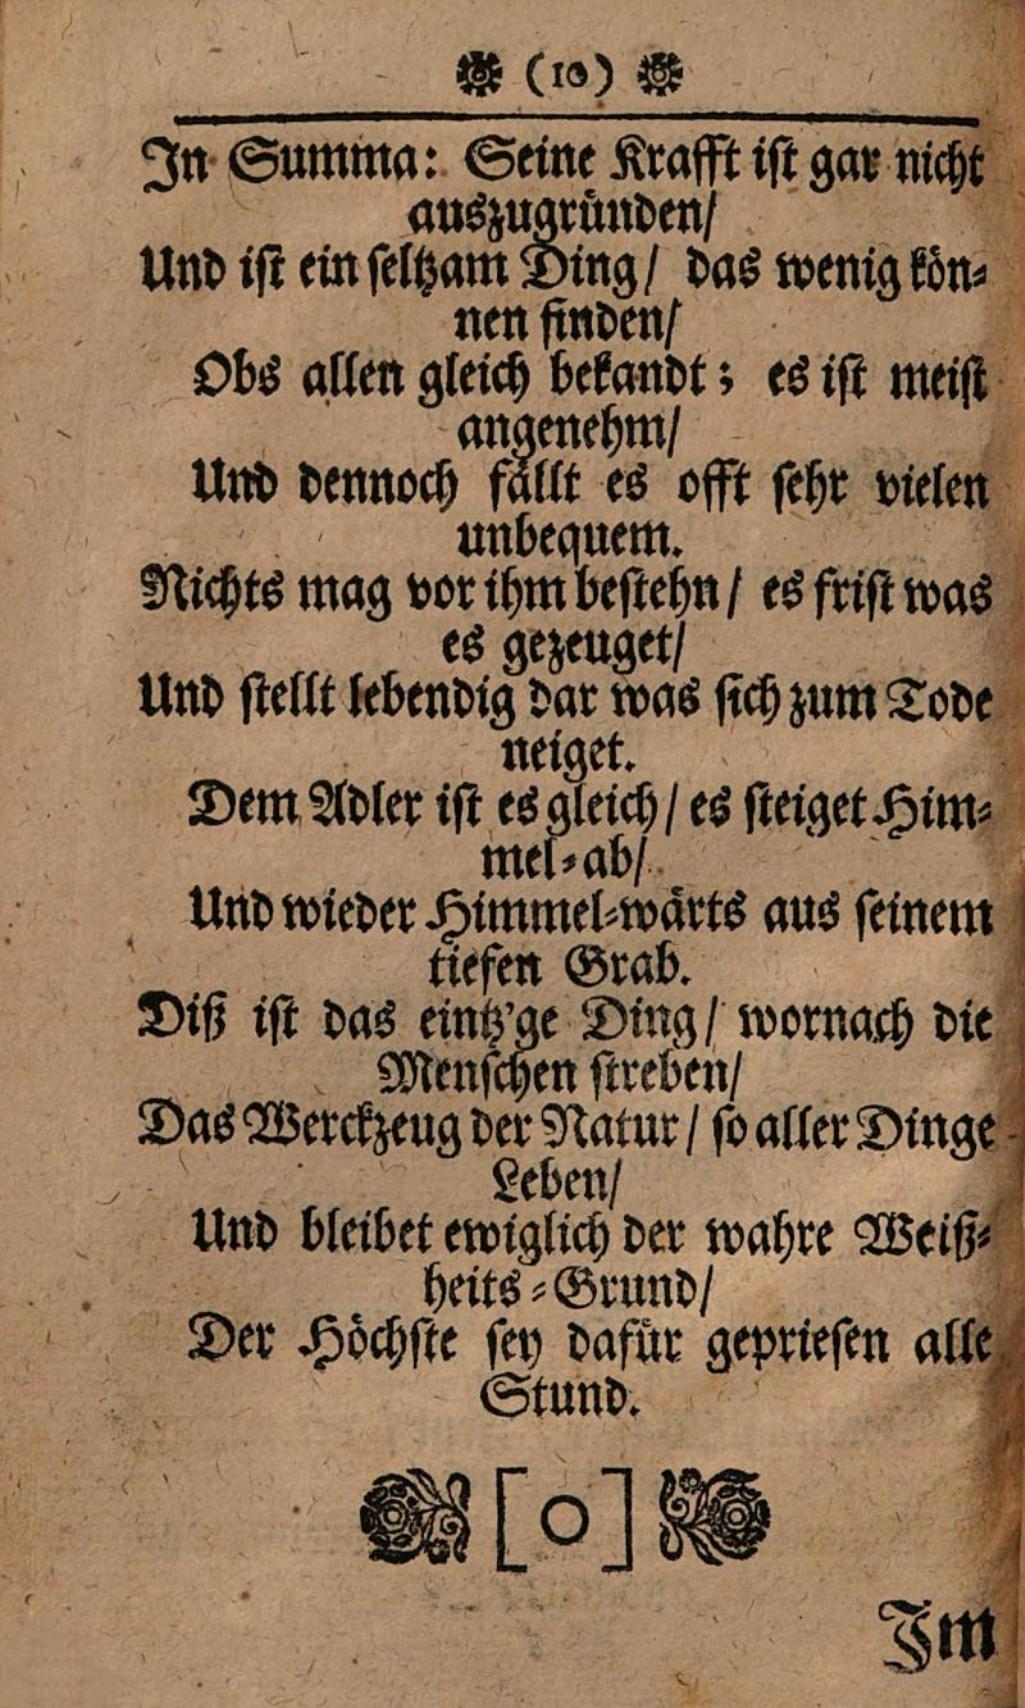 (10)
In Summa: Seine Krafft ist gar nicht
auszugründen/
Und ist ein seltzam Ding/ das wenig kön-
nen finden/
Obs allen gleich bekandt; es ist meist
angenehm/
Und dennoch fällt es offt sehr vielen
unbequem.
Nichts mag vor ihm bestehn/ es frist was
es gezeuget/
Und stellt lebendig dar was sich zum Tode
neiget.
Dem Adler ist es gleich/ es steiget Him-
mel-ab/
Und wieder Himmel-wärts aus seinem
tiefen Grab.
Diß ist das eintz'ge Ding/ wornach die
Menschen streben/
Das Werckzeug der Natur/ so aller Dinge
Leben/
Und bleibet ewiglich der wahre Weiß-
heits-Grund/
Der Höchste sey dafür gepriesen alle
Stund.
[O]
Im